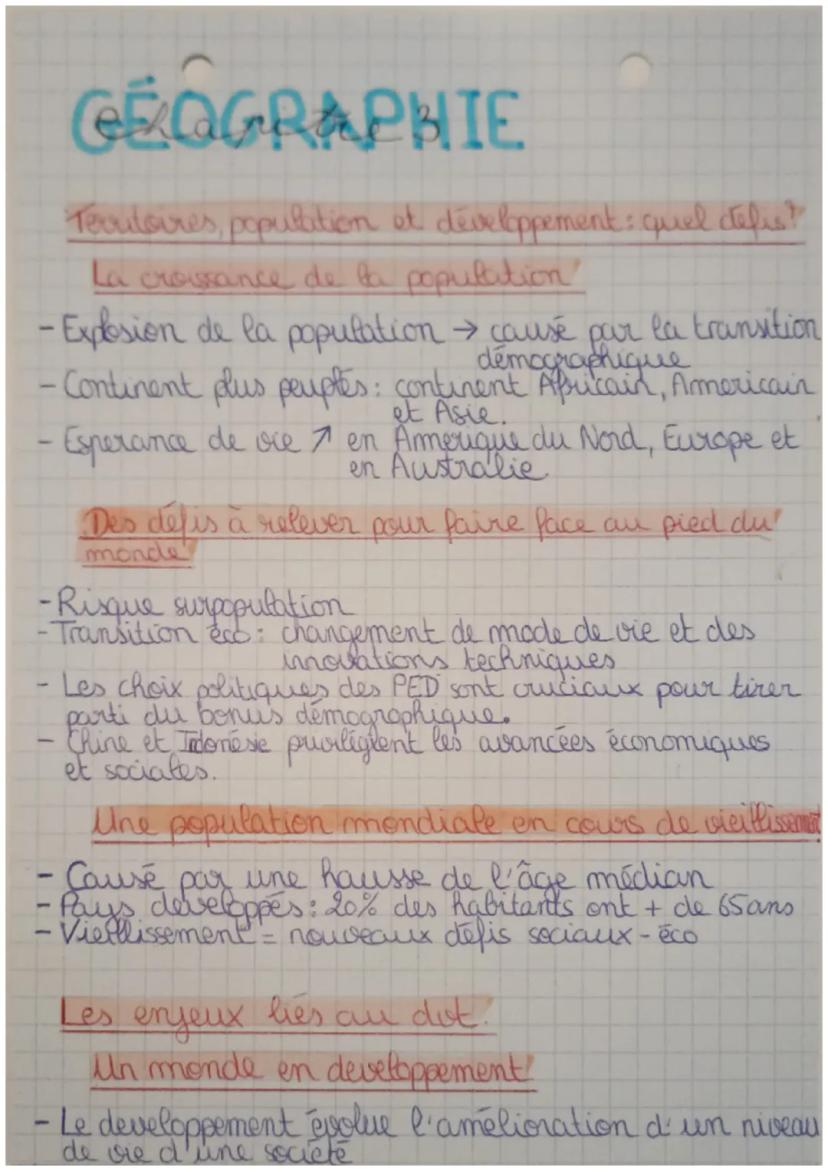 GÉOGRAPHIE
chapitre 3
Territoires, population et développement : quel défis ?
La croissance de la population
- Explosion de la population → causé par la transition
démographique
- Continent plus peuplés : continent Africain, Americain
et Asie.
- Esperance de vie ↗ en Amérique du Nord, Europe et
en Australie
Des défis à relever pour faire face au pied du
monde
- Risque surpopulation
- Transition éco : changement de mode de vie et des
innovations techniques
- Les choix politiques des PED sont cruciaux pour tirer
parti du bonus démographique.
- Chine et Indonésie privilégient les avancées économiques
et sociales.
Une population mondiale en cours de vieillissement
- Causé par une hausse de l'âge médian
- Pays developpés : 20% des habitants ont + de 65 ans
- Vieillissement = nouveaux défis sociaux - éco
Les enjeux liés au dvt.
Un monde en developpement
- Le developpement évolue l'amélioration d'un niveau
de vie d'une société